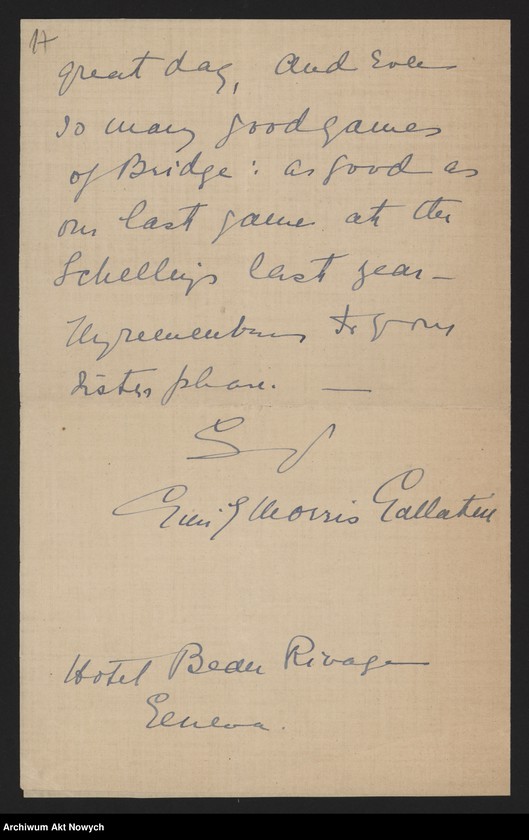 17
great day, and ever
so many good games
of Bridge: as good as
our last game at the
Schellings last year—
My remembrances to your
sister please. —
Emily Morris Gallatin
Hotel Beau Rivage
Geneva.
Archiwum Akt Nowych